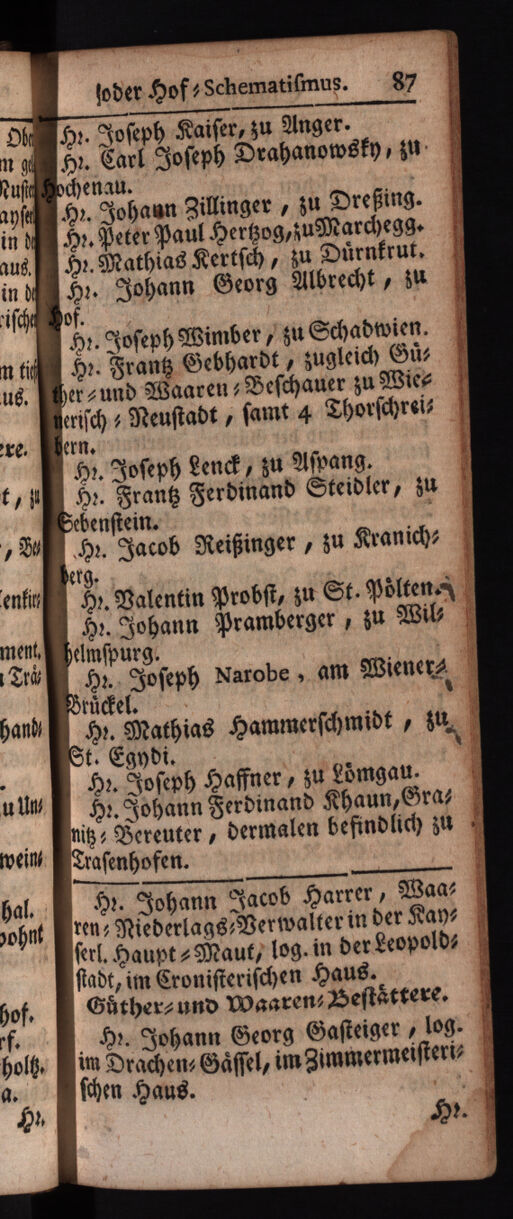 oder Hof-Schematismus. 87
Hr. Joseph Kaiser, zu Anger.
Hr. Carl Joseph Drahanowsky, zu
Hochenau.
Hr. Johann Zillinger, zu Dreßing.
Hr. Peter Paul Hertzog, zu Marchegg.
Hr. Mathias Kertsch, zu Dürnkrut.
Hr. Johann Georg Albrecht, zu
Hof.
Hr. Joseph Wimber, zu Schadwien.
Hr. Frantz Gebhardt, zugleich Gü-
ther- und Waaren-Beschauer zu Wie-
nerisch-Neustadt, samt 4 Thorschrei-
bern.
Hr. Joseph Lenck, zu Aspang.
Hr. Frantz Ferdinand Steidler, zu
Sebenstein.
Hr. Jacob Reißinger, zu Kranich-
berg.
Hr. Valentin Probst, zu St. Pölten.
Hr. Johann Pramberger, zu Wil-
helmspurg.
Hr. Joseph Narobe, am Wiener-
Brückel.
Hr. Mathias Hammerschmidt, zu
St. Egydi.
Hr. Joseph Haffner, zu Lömgau.
Hr. Johann Ferdinand Khaun, Gra-
nitz-Bereuter, dermalen befindlich zu
Trasenhofen.
Hr. Johann Jacob Harrer, Waa-
ren-Niederlags-Verwalter in der Kay-
serl. Haupt-Maut, log. in der Leopold-
stadt, im Cronisterischen Haus.
Güther- und Waaren-Bestättere.
Hr. Johann Georg Gasteiger, log.
im Drachen-Gässel, im Zimmermeisteri-
schen Haus.
Hr.